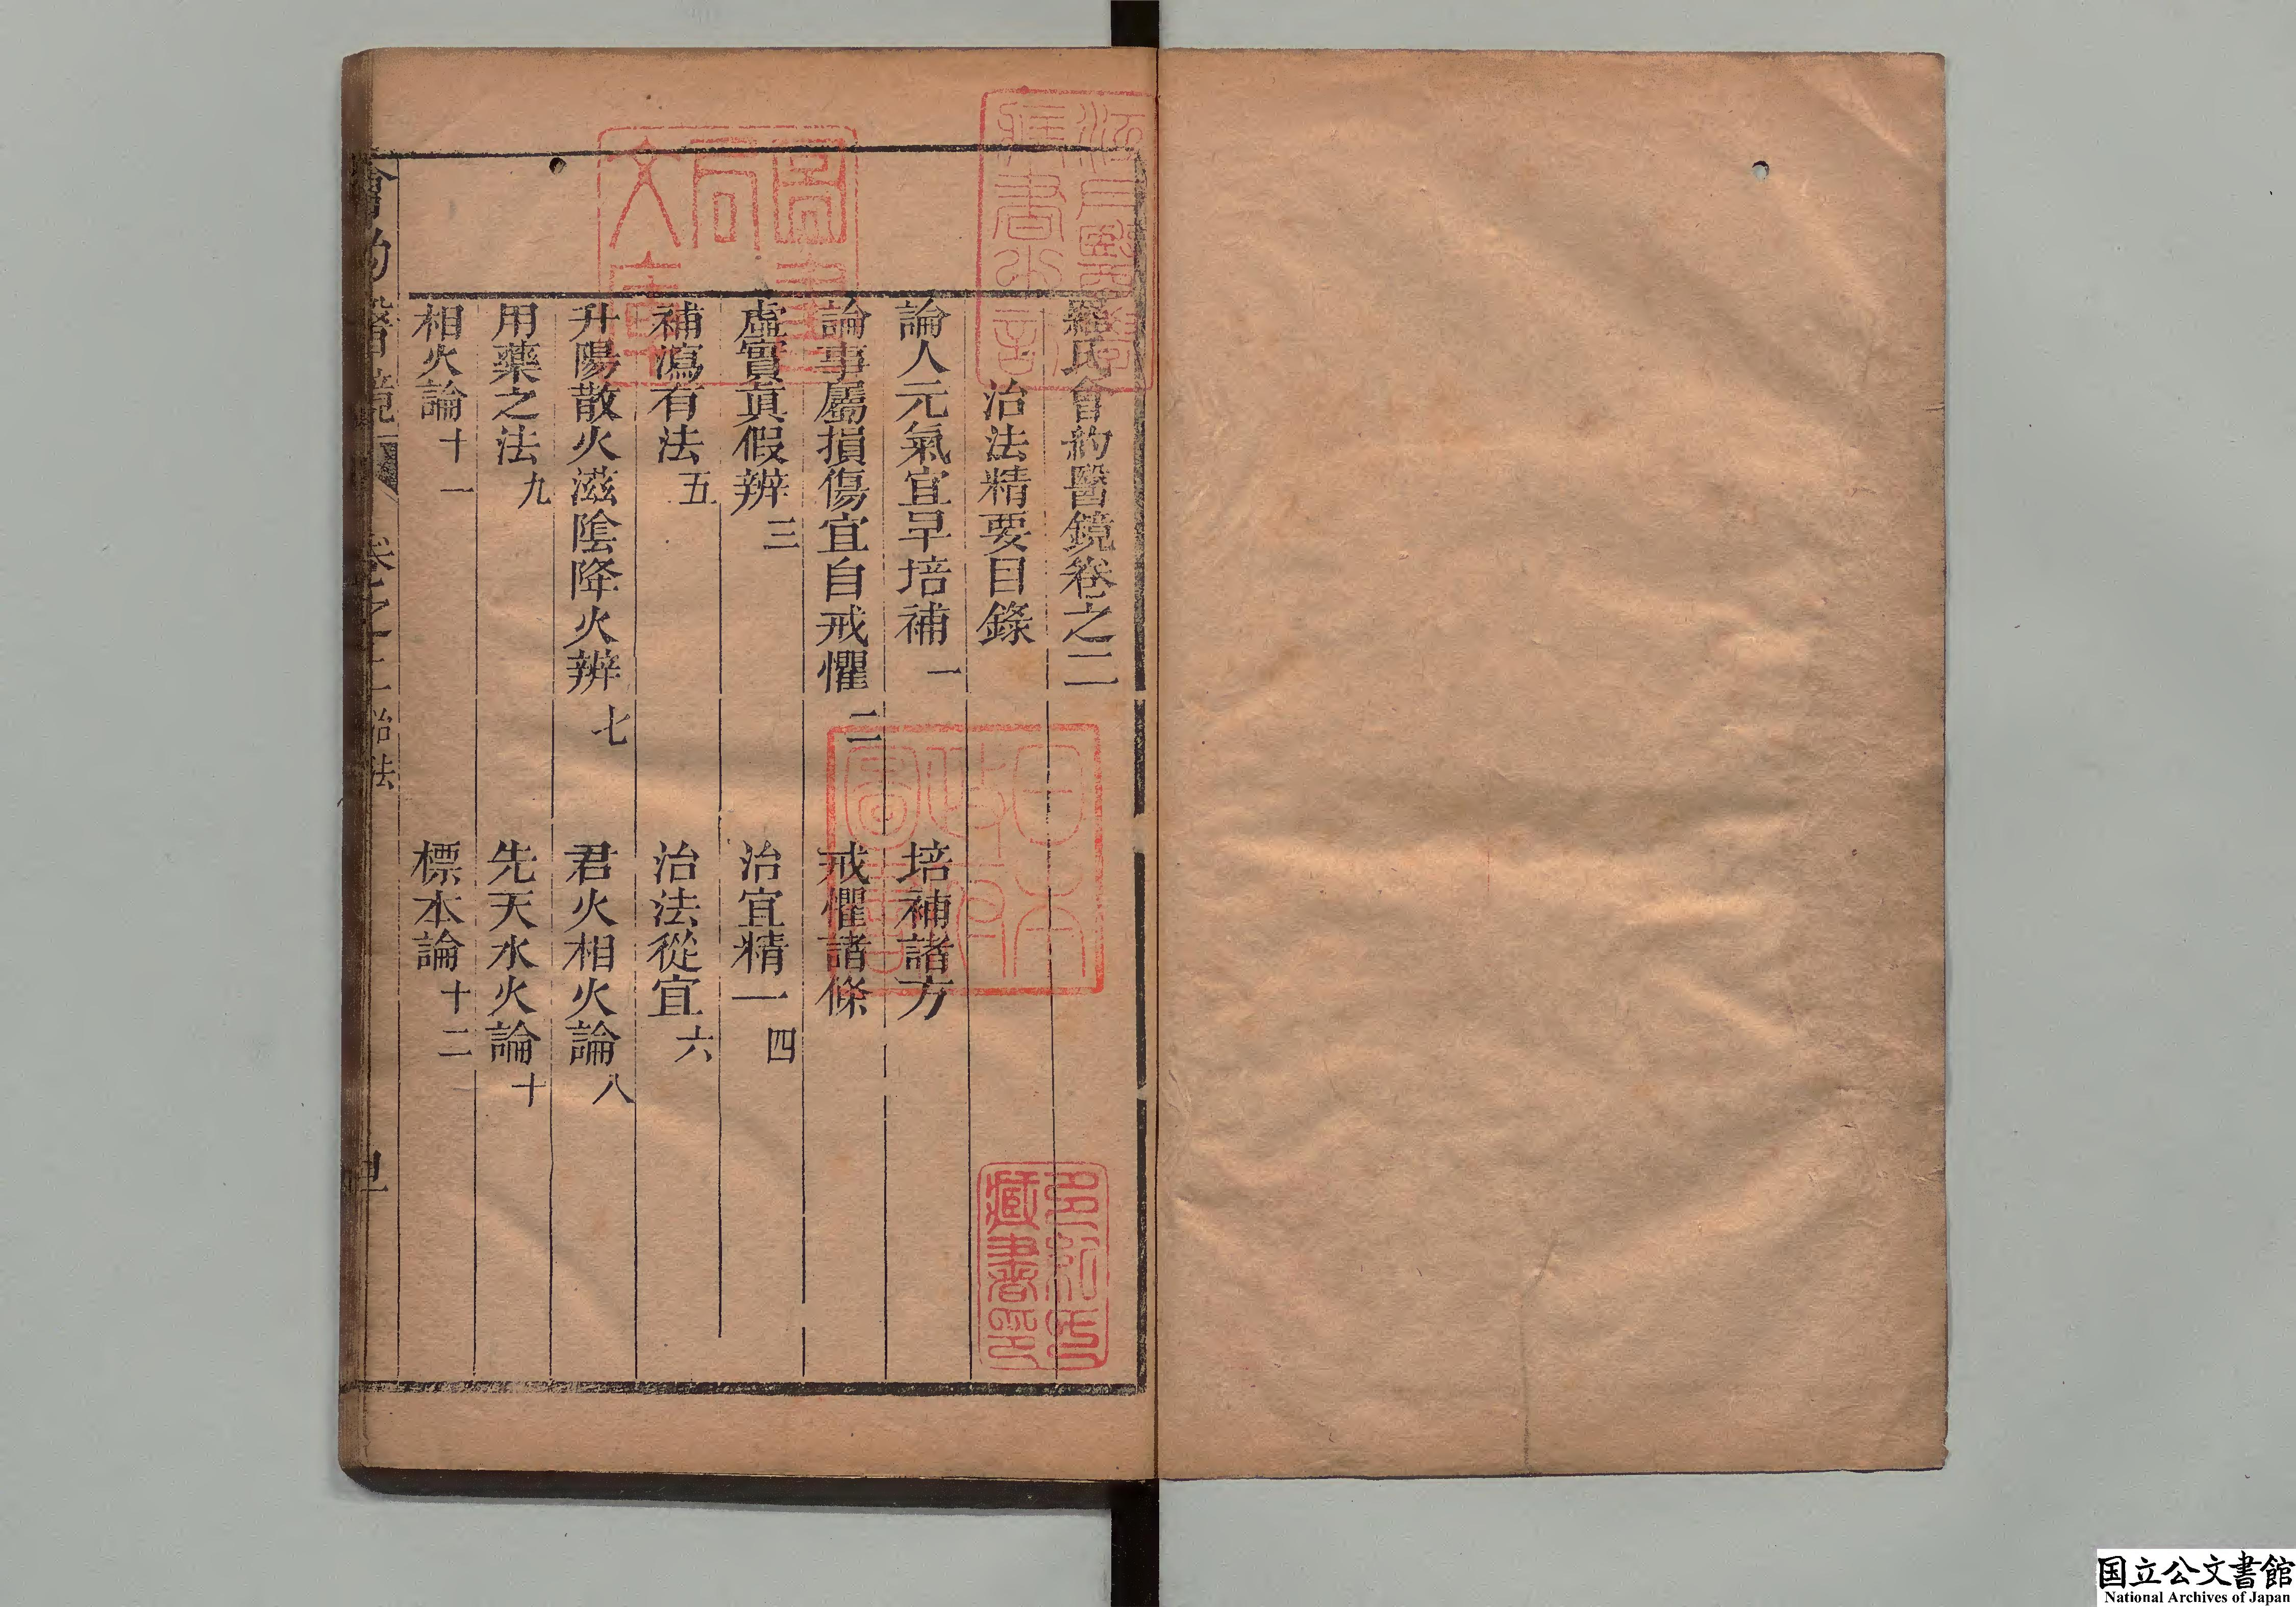 羅氏會約醫鏡卷之二
治法精要目錄
論人元氣宜早培補 一 培補諸方
論事屬損傷宜自戒懼 二 戒懼諸條
虛實眞假辨 三 治宜精一 四
補瀉有法 五 治法從宜 六
升陽散火滋陰降火辨 七 君火相火論 八
用藥之法 九 先天水火論 十
相火論 十一 標本論 十二
會約醫鏡 卷之二 治法
日本政府圖書
多紀氏藏書印
国立公文書館
National Archives of Japan